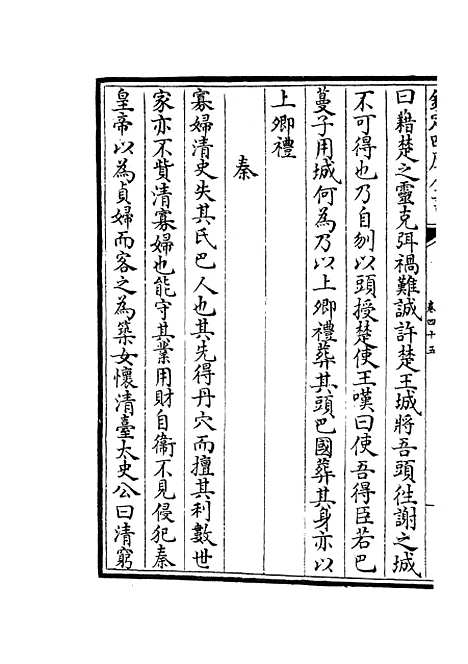 欽定四庫全書
卷四十五
曰藉楚之靈克弭禍難誠許楚王城將吾頭徃謝之城
不可得也乃自刎以頭授楚使王嘆曰使吾得臣若巴
蔓子用城何為乃以上卿禮葬其頭巴國葬其身亦以
上卿禮
秦
寡婦清史失其氏巴人也其先得丹穴而擅其利數世
家亦不貲清寡婦也能守其業用財自衞不見侵犯秦
皇帝以為貞婦而客之為築女懷清臺太史公曰清窮